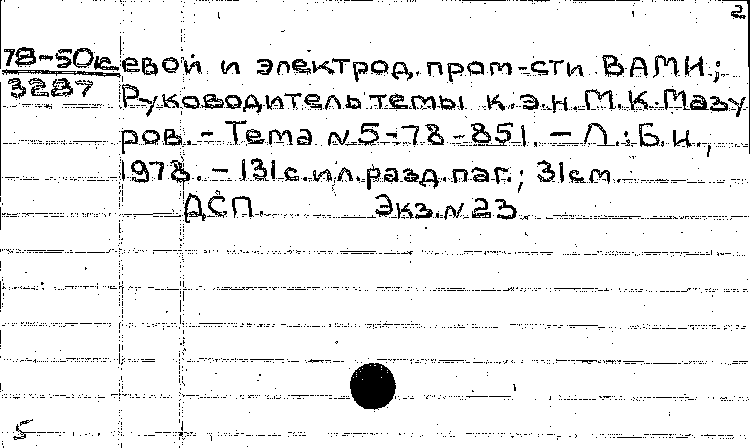 2
78-50к евой и электрод.пром-сти ВАМИ;
3287 Руководитель темы к.э.н.М.К.Мазу
ров. - Тема №5-78-851. - Л.: Б.и.,
1978. - 131с.ил.разд.паг.; 31см.
ДСП. Экз.№23.
5